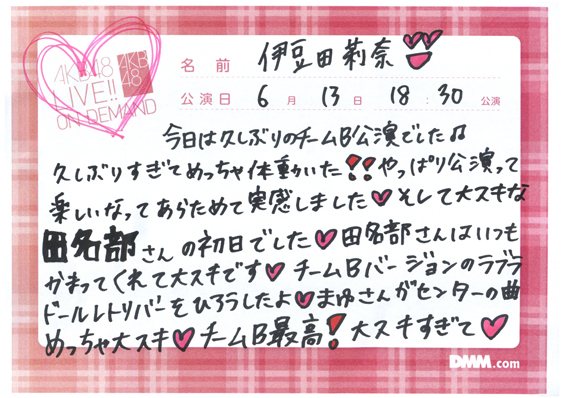 AKB48
LIVE!!
ON DEMAND
AKB
48
名前 伊豆田莉奈
公演日 6月 13日 18:30 公演
今日は久しぶりのチームB公演でした♫
久しぶりすぎてめっちゃ体動いた!!やっぱり公演って
楽しいなってあらためて実感しました♥そして大スキな
田名部さんの初日でした♥田名部さんはいつも
かまってくれて大スキです♥チームBバージョンのラブラ
ドールレトリバーをひろうしたよ♥まゆさんがセンターの曲
めっちゃ大スキ♥チームB最高!大スキすぎて♥
DMM.com